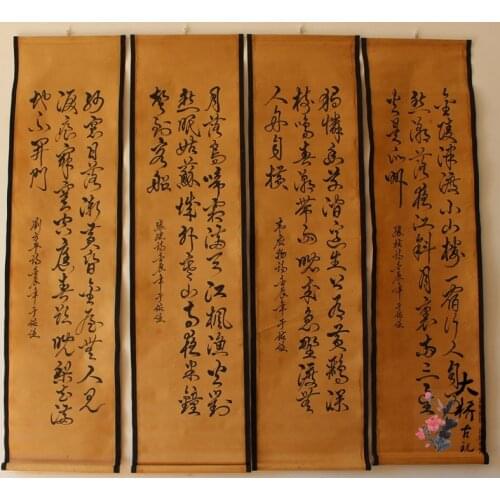 金陵津渡小山樓一宿行人自
愁潮落夜江斜月裏兩三星
火是瓜州
張祜詩壬辰年于
獨憐幽草澗邊生上有黃鸝深
樹鳴春潮帶雨晚來急野渡無
人舟自橫
韋應物詩壬辰年于
月落烏啼霜滿天江楓漁火對
愁眠姑蘇城外寒山寺夜半鐘
聲到客船
張繼詩壬辰年于
紗窗日落漸黃昏金屋無人見
淚痕寂寞空庭春欲晚梨花滿
地不開門
劉方平詩壬辰年于
大桥
古礼